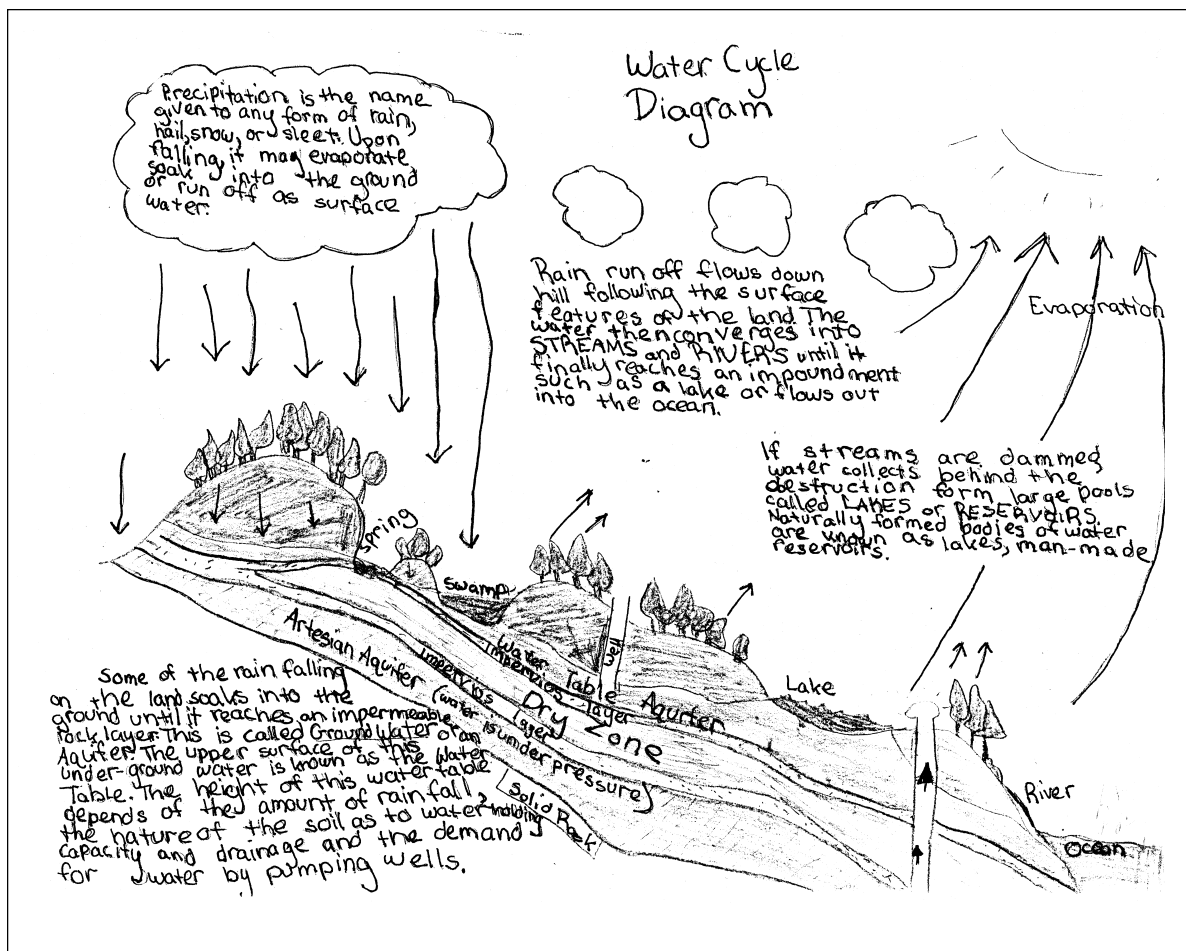 Water Cycle
Diagram
Precipitation is the name
given to any form of rain,
hail, snow, or sleet. Upon
falling, it may evaporate
soak into the ground
or run off as surface
water.
Rain run off flows down
hill following the surface
features of the land. The
water then converges into
STREAMS and RIVERS until it
finally reaches an impoundment
such as a lake or flows out
into the ocean.
Evaporation
If streams are dammed,
water collects behind the
destruction form large pools
called LAKES or RESERVOIRS.
Naturally formed bodies of water
are known as lakes, man-made
reservoirs.
Spring
Swamp
Well
Lake
River
Ocean
Water Table Aquifer
Impervios layer
Dry Zone
Impervios layer
Artesian Aquifer (water is under pressure)
Solid Rock
Some of the rain falling
on the land soaks into the
ground until it reaches an impermeable
rock layer. This is called Groundwater or an
Aquifer. The upper surface of this
under-ground water is known as the Water
Table. The height of this water table
depends of the amount of rainfall,
the nature of the soil as to water holding
capacity and drainage and the demand
for water by pumping wells.